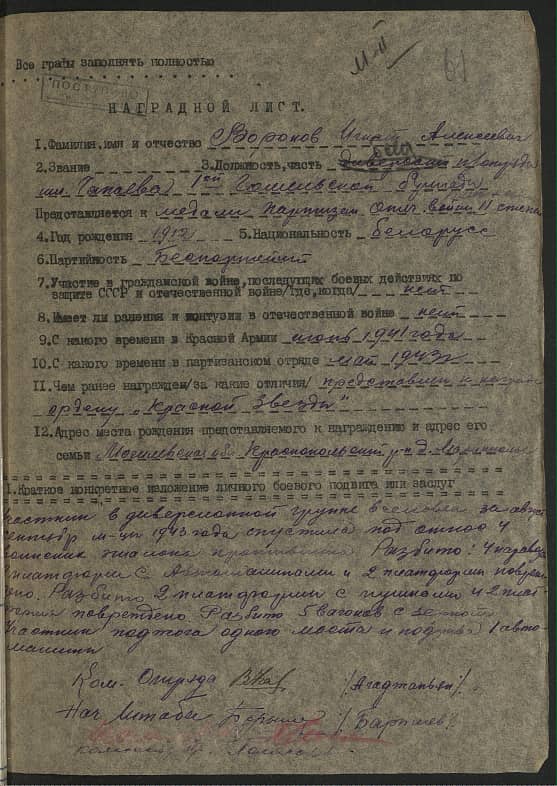 Все графы заполнять полностью
ПОСТУПИЛО
61
НАГРАДНОЙ ЛИСТ.
1.Фамилия,имя и отчество Воронов Игнат Алексеевич
2.Звание 3.Должность,часть
им. Чапаева 1ой Гомельской бригады
Представляется к медали Партизан. Отеч. войны II степени
4.Год рождения 1912 5.Национальность белорусс
6.Партийность Беспартийный
7.Участие в гражданской войне,последующих боевых действиях по
защите СССР и отечественной войне/где,когда/ нет
8.Имеет ли ранения и контузии в отечественной войне нет
9.С какого времени в Красной Армии июнь 1941 года
10.С какого времени в партизанском отряде май 1943г
11.Чем ранее награжден/за какие отличия/ представлен к
ордену „Красной Звезды"
12.Адрес места рождения представляемого к награждению и адрес его
семьи Могилевская об. Краснопольский р-н д.
1.Краткое конкретное изложение личного боевого подвига или заслуг
Участник в диверсионной группе за август
сентябр м-цы 1943 года спустила под откос 4
эшелона противника. Разбито: 4 паровоза
платформ с Автомашинами и 2 платформы повреж-
дено. Разбито 2 платформы с пушками и 2 плат-
повреждено. Разбито 5 вагонов с
Участник поджога одного моста и 1 авто-
машины
Ком. Отряда
Нач Штаба